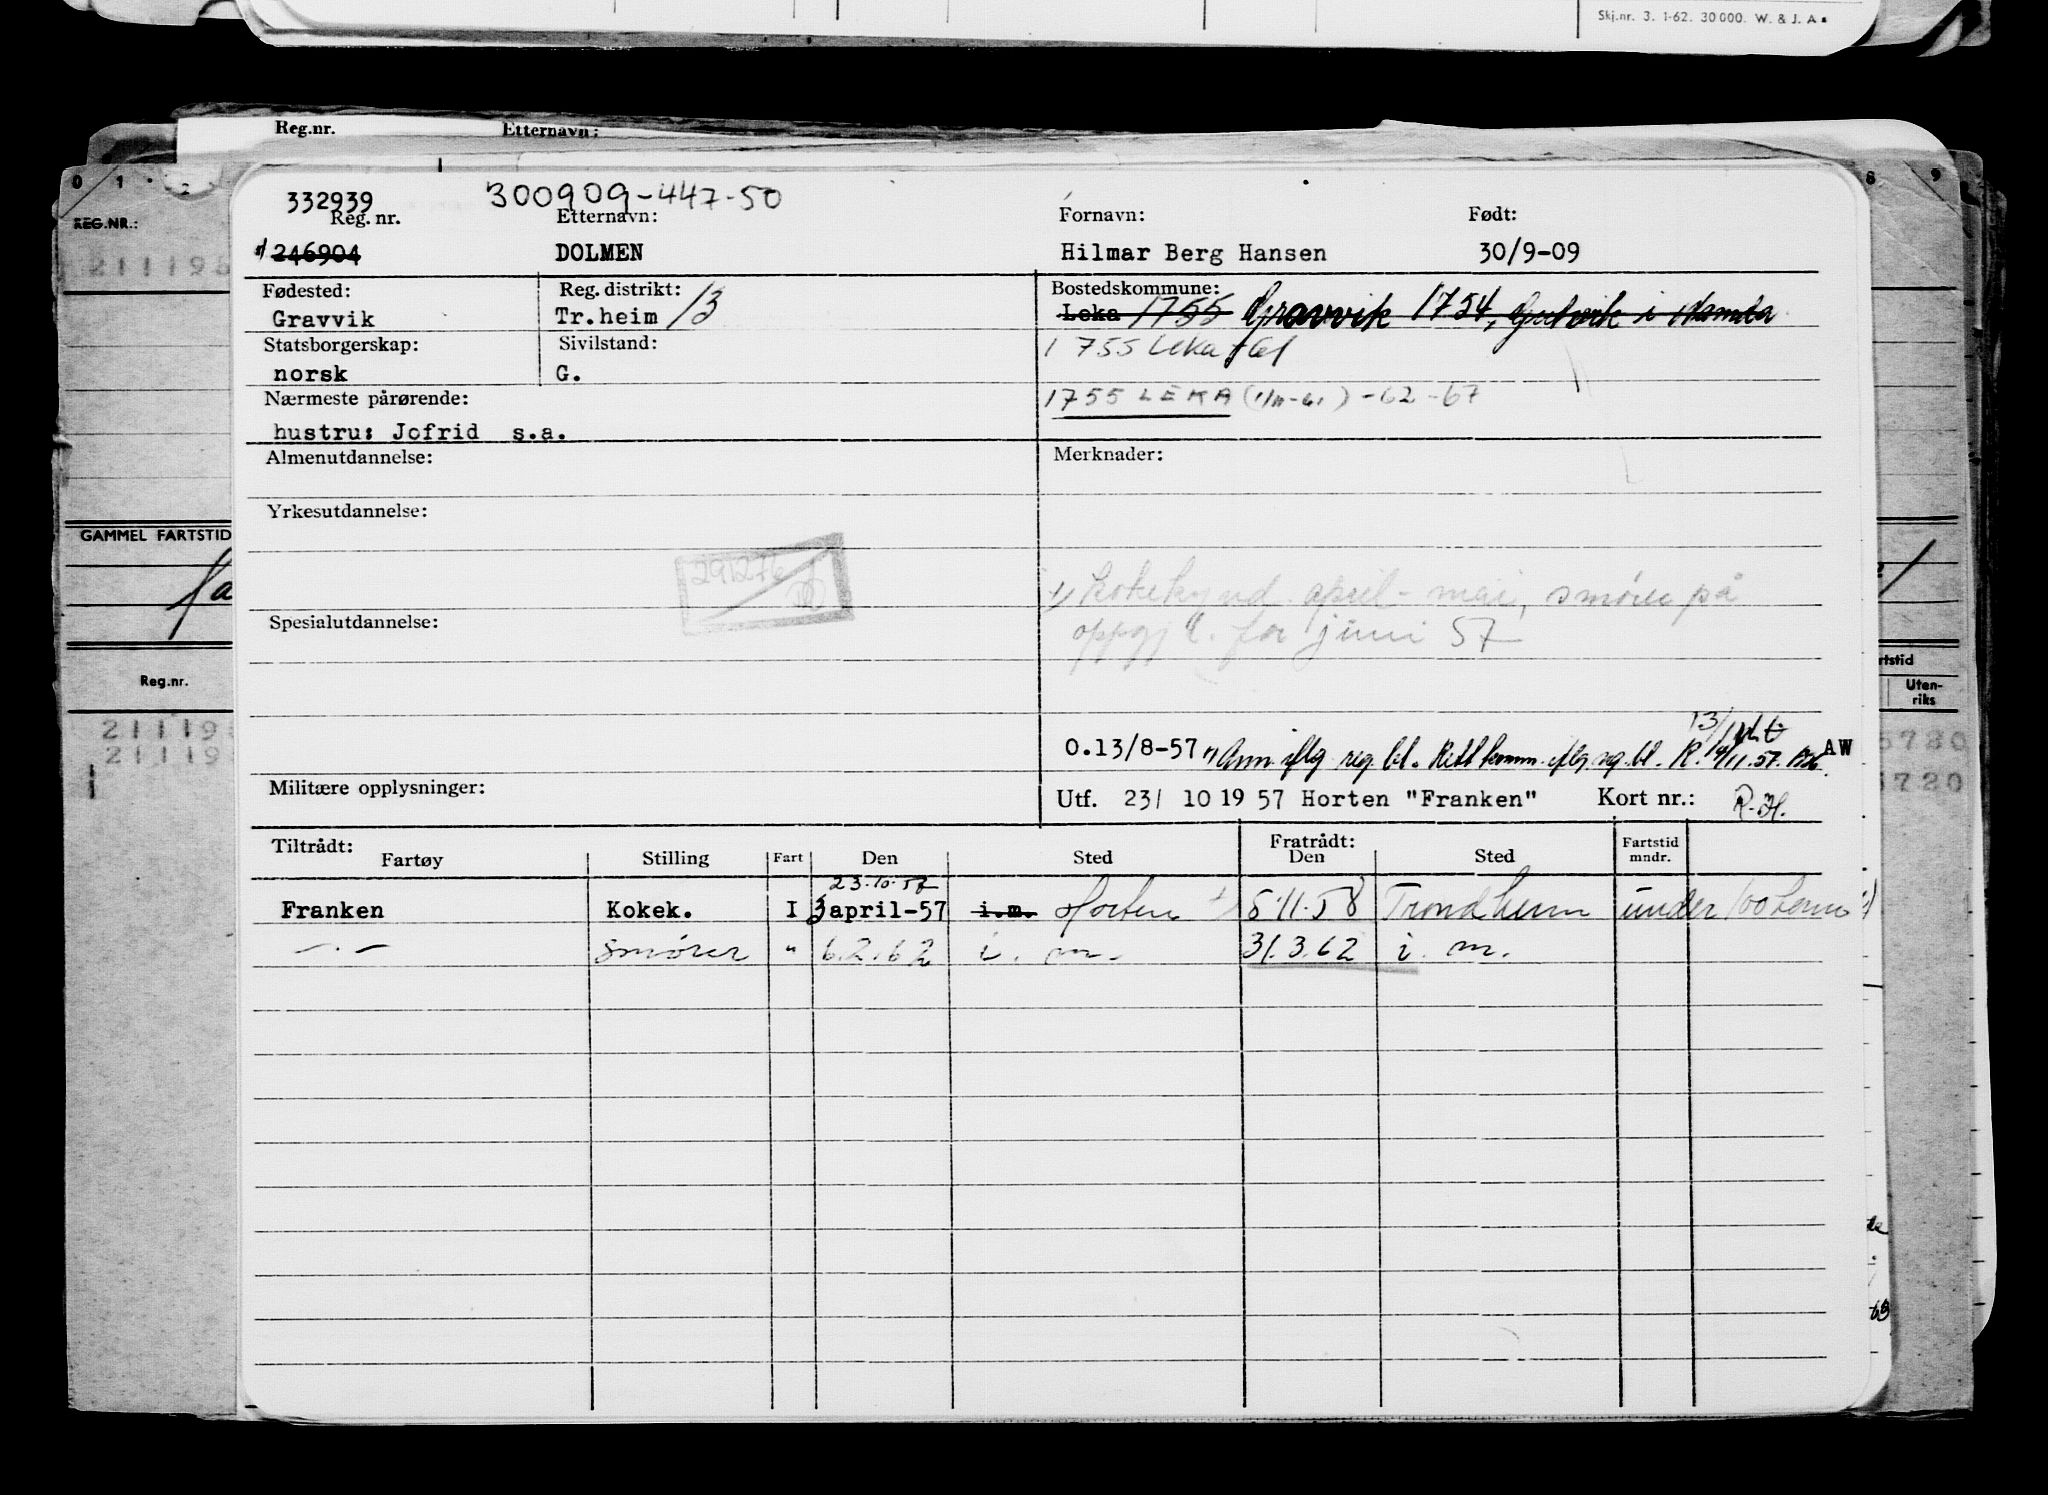 Skj.nr. 3. 1-62. 30000. W. & J. A
Reg.nr. Etternavn:
0 1 2 8 9
REG.NR.:
211195
332939 300909-447-50
Reg. nr. Etternavn: Fornavn: Født:
246904 DOLMEN Hilmar Berg Hansen 30/9-09
Fødested: Reg. distrikt: Bostedskommune:
Gravvik Tr.heim 13 Leka 1755 Gravvik 1754, i
Statsborgerskap: Sivilstand: 1755 Leka
norsk G.
Nærmeste pårørende: 1755 LEKA -62-67
hustru: Jofrid s.a.
Almenutdannelse: Merknader:
Yrkesutdannelse:
GAMMEL FARTSTID
291276
1) april - mai, smører på
for juni 57
Spesialutdannelse:
Reg.nr. Fartstid
Uten-
riks
O.13/8-57 Ann. iflg. reg. bl. iflg. reg. bl. R. 14/11.57. AW
Militære opplysninger:
Utf. 23/ 10 19 57 Horten "Franken" Kort nr.: R.H.
Tiltrådt: Fratrådt: Fartstid
Fartøy Stilling Fart Den Sted Den Sted mndr.
23.10.57
Franken Kokek. I 3 april-57 i.m. Horten 5.11.58 Trondheim under 100 tonn
—"— smører " 6.2.62 i. m. 31.3.62 i. m.